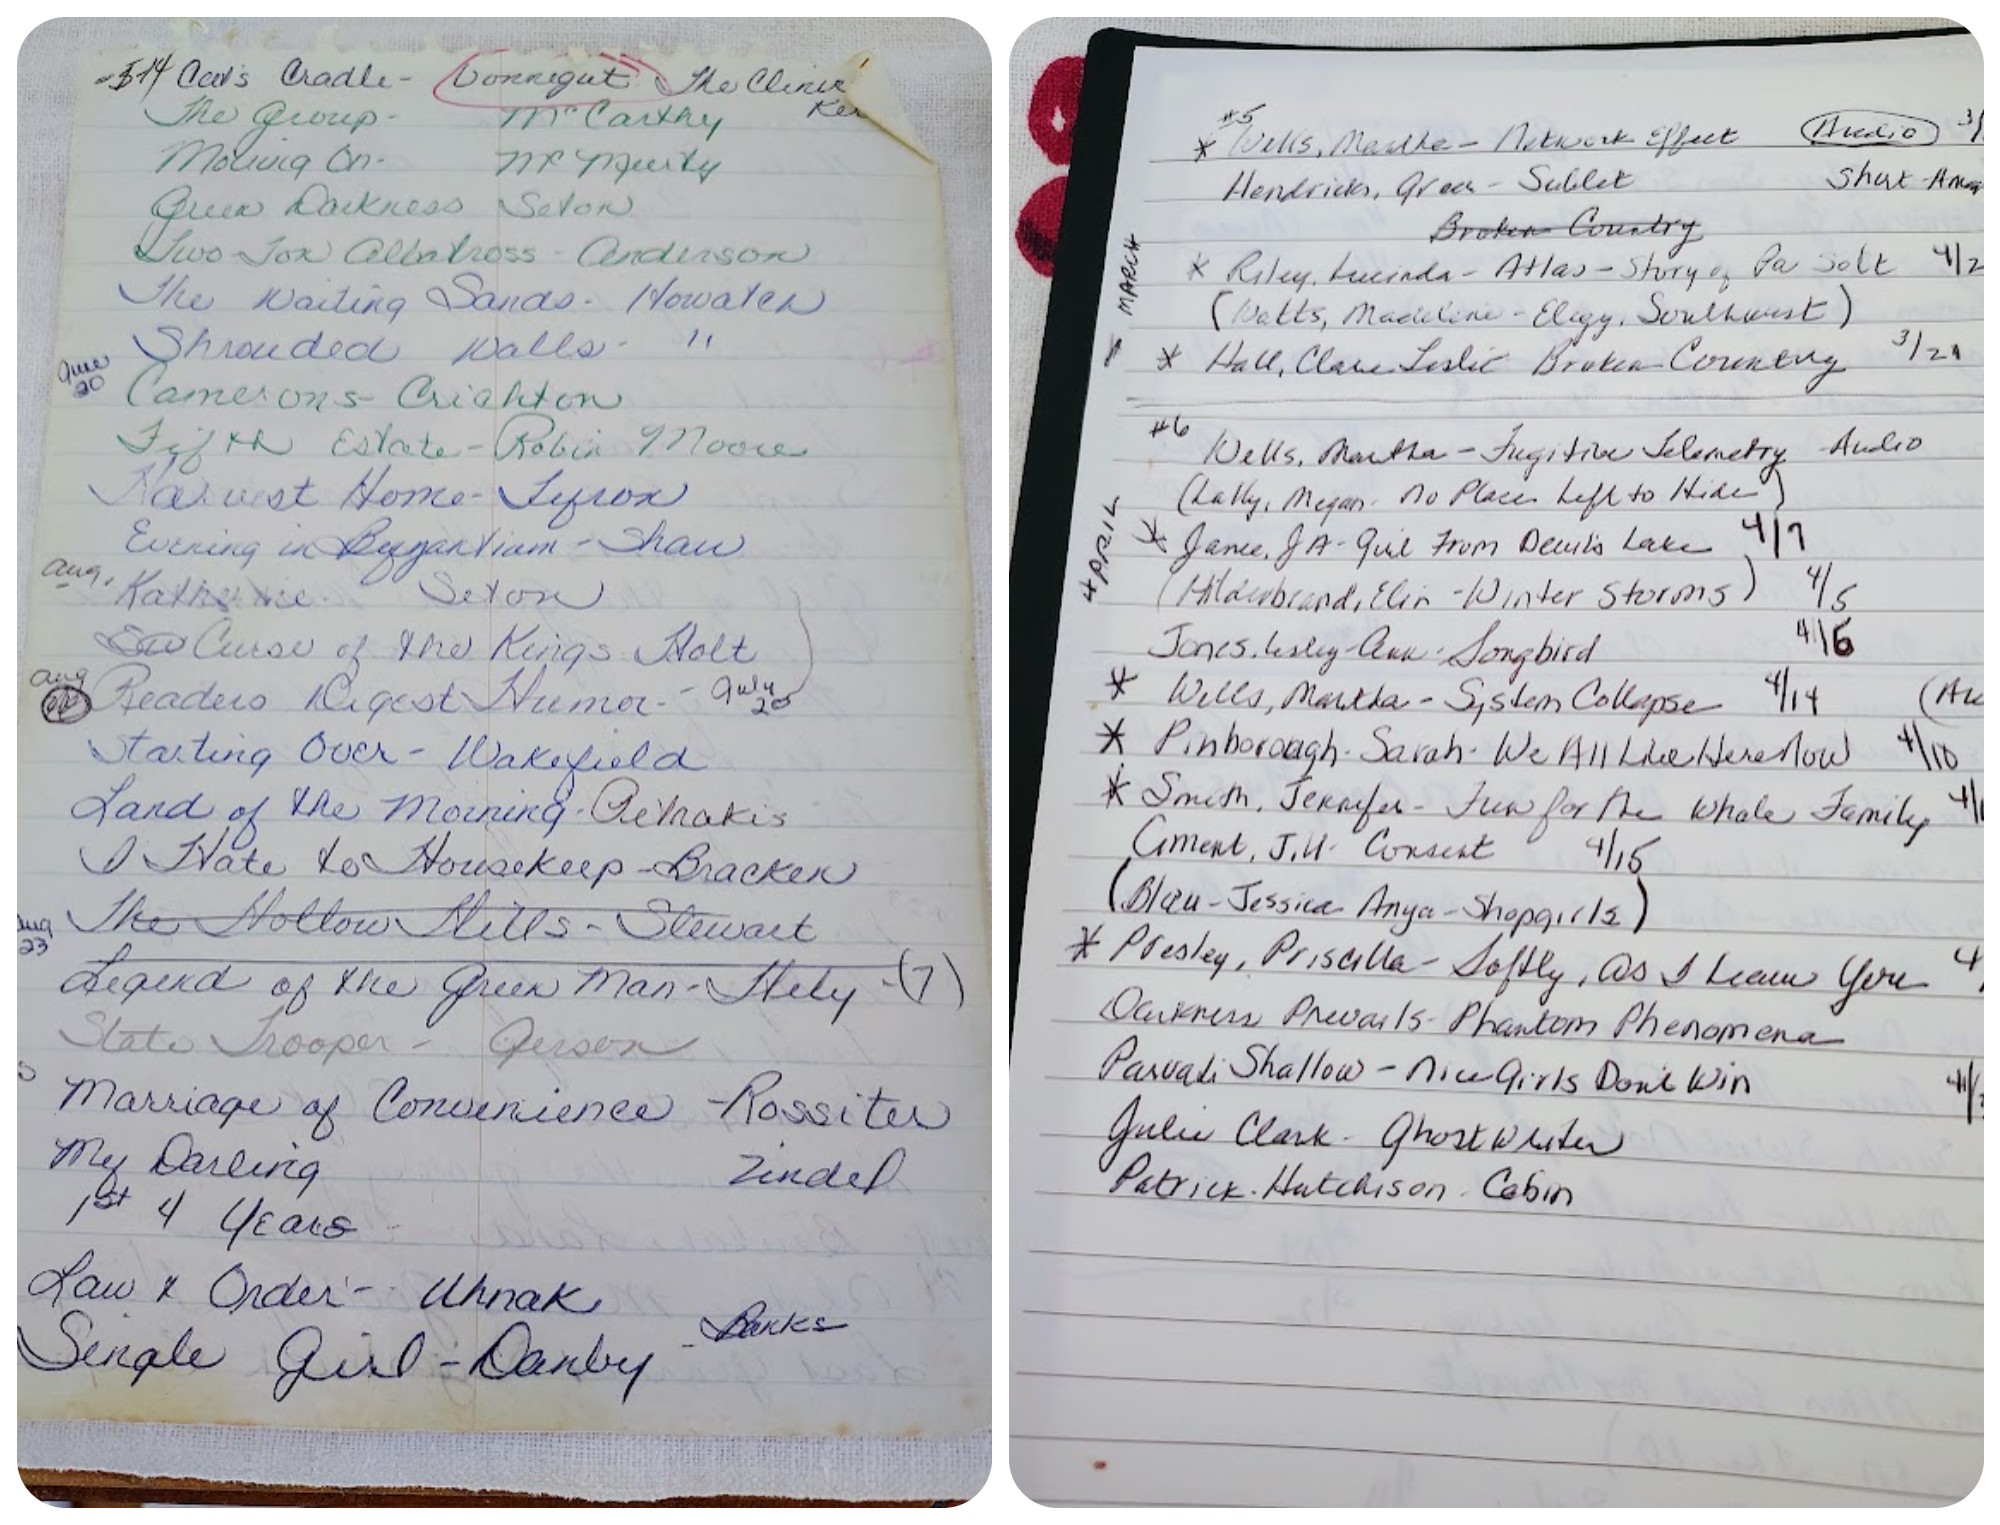 -5-14 Cat's Cradle - Vonnegut The Clinic
Ker
The Group - McCarthy
Moving On - McMurtry
Green Darkness Seton
Two Ton Albatross - Anderson
The Waiting Sands - Howatch
Shrouded Walls - "
June 20
Camerons - Crichton
Fifth Estate - Robin Moore
Harvest Home - Tyron
Evening in Byzantium - Shaw
Aug.
Katherine - Seton
Curse of the Kings Holt
Aug
Readers Digest Humor - July 20
Starting Over - Wakefield
Land of the Morning - Petrakis
I Hate to Housekeep - Bracken
Aug 23
The Hollow Hills - Stewart
Legend of the Green Man - Hely - (7)
State Trooper - Gerson
Marriage of Convenience - Rossiter
My Darling Zindel
1st 4 Years -
Law & Order - Uhnak
Single Girl - Danby - Banks
#5
* Wells, Martha - Network Effect Audio 3/
Hendricks, Greer - Sublet Short - Amaz
Broken Country
MARCH
* Riley, Lucinda - Atlas - Story of Pa Solt 4/2
(Watts, Madeline - Elegy, Southwest)
* Hall, Clare Leslie Broken Country 3/29
#6
Wells, Martha - Fugitive Telemetry Audio
(Lally, Megan - No Place Left to Hide)
APRIL
* Jance, JA - Girl From Devils Lake 4/7
(Hilderbrand, Elin - Winter Storms) 4/5
Jones, Lesley-Ann - Songbird 4/6
* Wells, Martha - System Collapse 4/14 (Au
* Pinborough - Sarah - We All Live Here Now 4/10
* Smith, Jennifer - Fun for the Whole Family 4/1
Ciment, Jill - Consent 4/15
(Blau - Jessica Anya - Shopgirls)
* Presley, Priscilla - Softly, as I Leave You 4/
Darkness Prevails - Phantom Phenomena
Parvati Shallow - Nice Girls Don't Win 4/
Julie Clark - Ghostwriter
Patrick Hutchison - Cabin